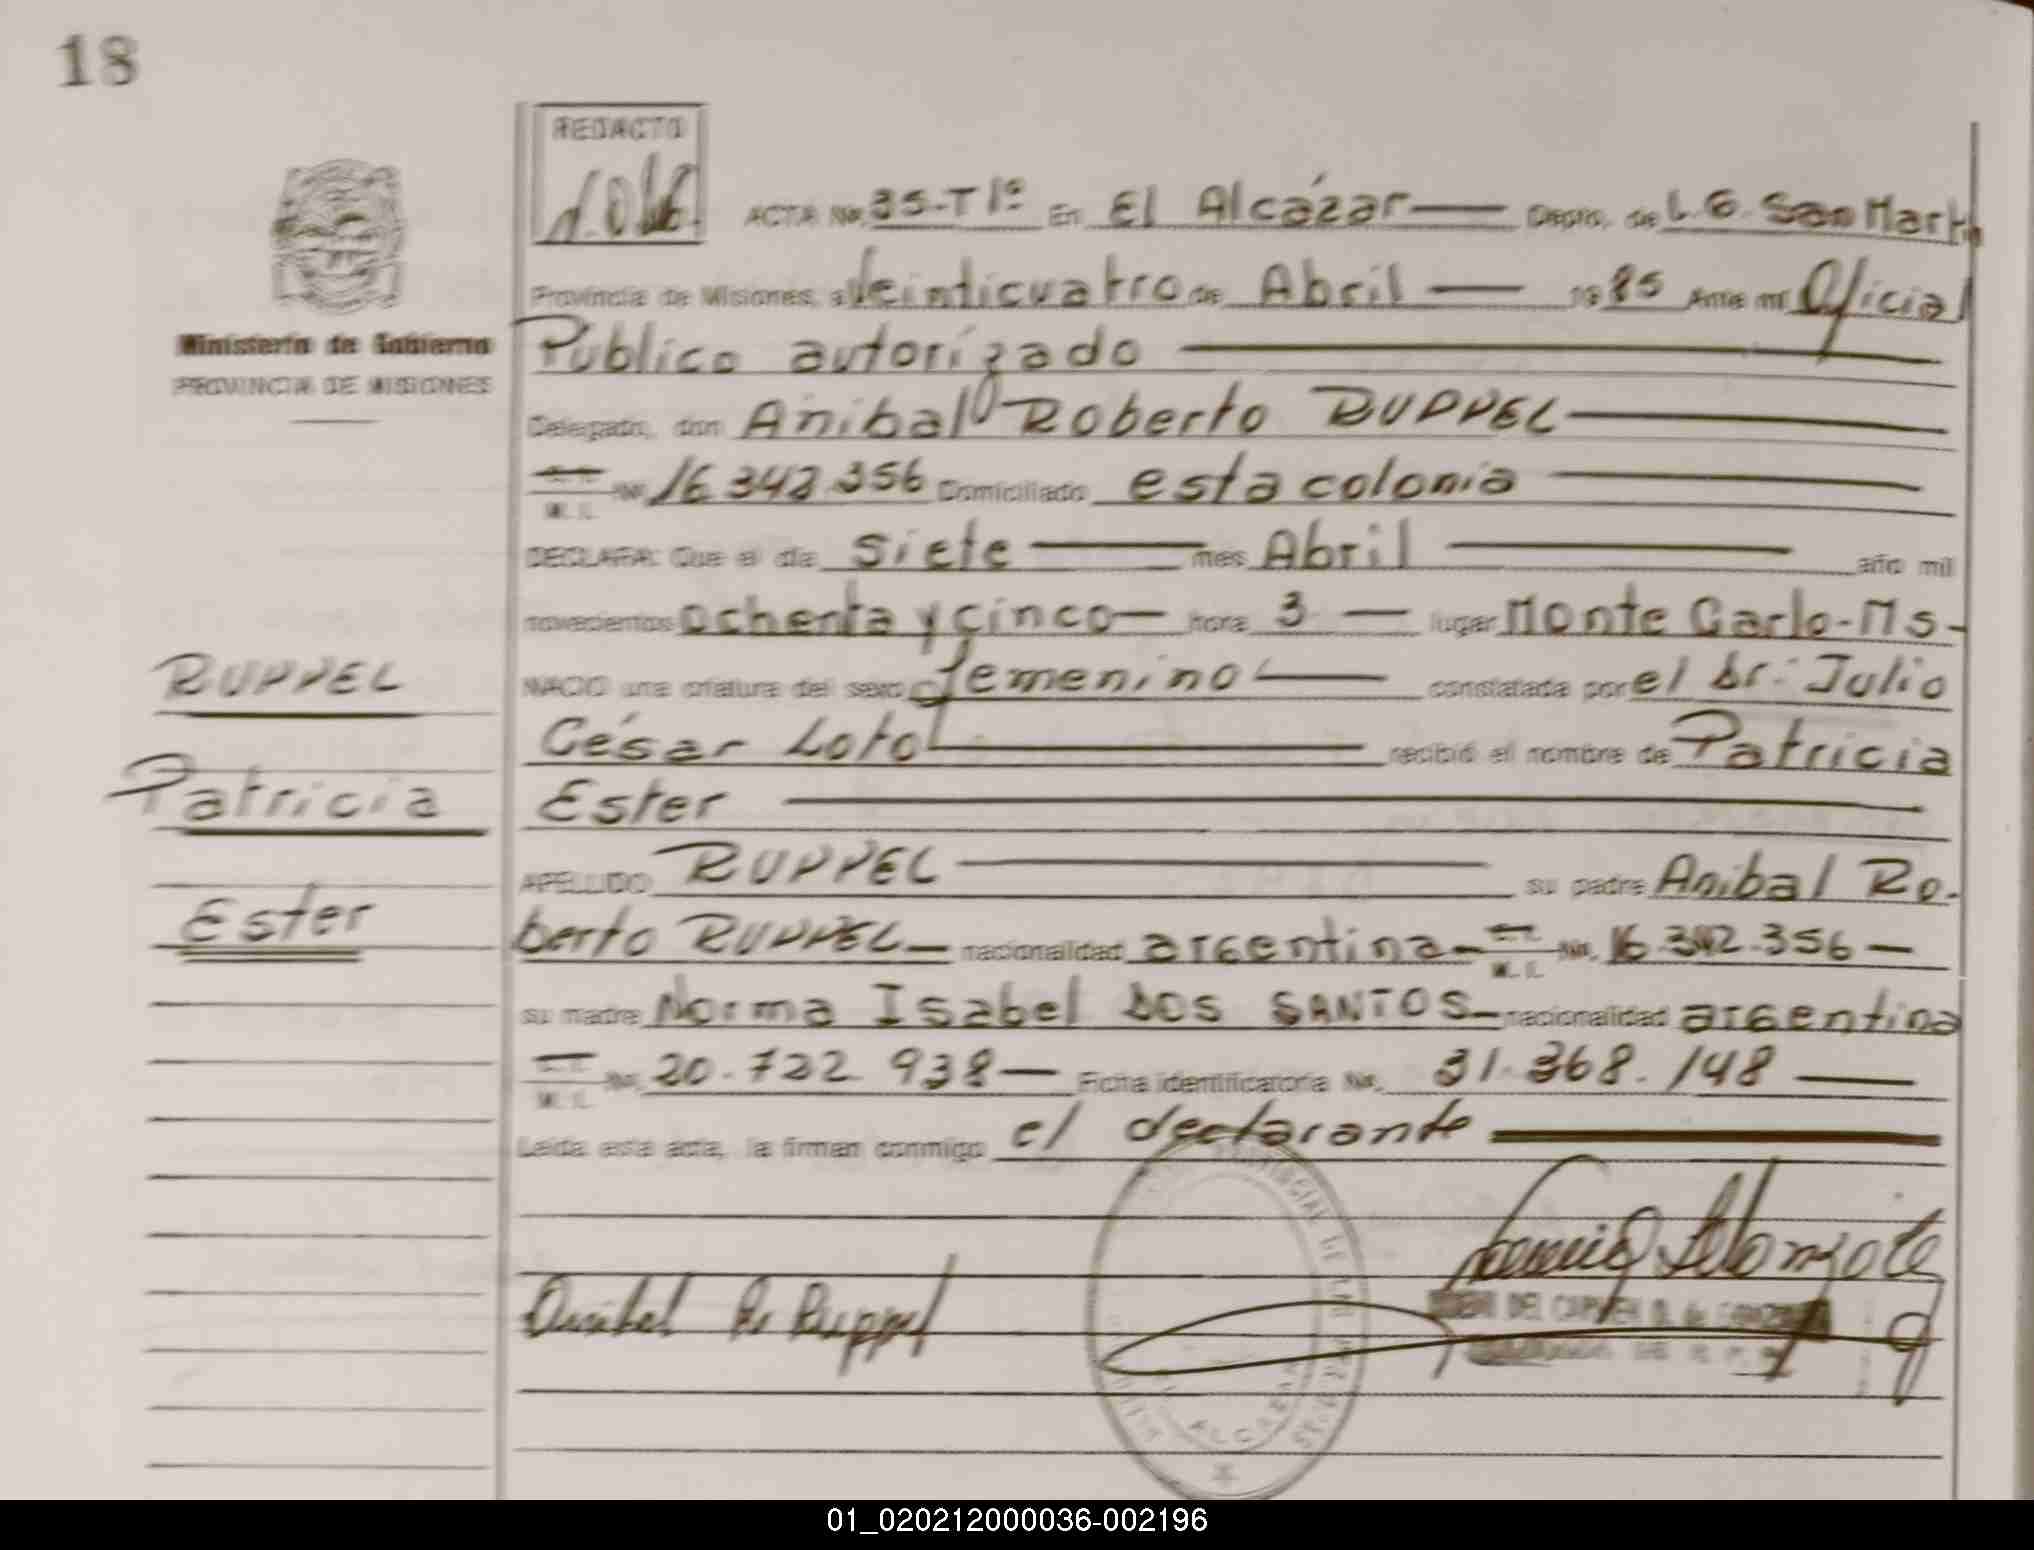 18
REDACTO
ACTA No. 35-T1º En El Alcázar Depto. de L. G. San Martín
Provincia de Misiones, a Veinticuatro de Abril 1985 Ante mí Oficial
Ministerio de Gobierno
PROVINCIA DE MISIONES
Público autorizado
Delegado, don Anibal Roberto RUPPEL
M. I. No. 16.342.356 Domiciliado esta colonia
DECLARA: Que el día siete mes Abril año mil
novecientos ochenta y cinco hora 3 lugar Monte Carlo-Ms-
NACIO una criatura del sexo femenino constatada por el Dr. Julio
César Loto recibió el nombre de Patricia
Ester
RUPPEL
Patricia
Ester
APELLIDO RUPPEL su padre Anibal Ro-
berto RUPPEL nacionalidad argentina M. I. No. 16.342.356
su madre Norma Isabel DOS SANTOS nacionalidad argentina
M. I. No. 20.722.938 Ficha identificatoria No. 31.368.148
Leída esta acta, la firman conmigo el declarante
Anibal R. Ruppel
DEL CARMEN
ALCAZAR
01_020212000036-002196